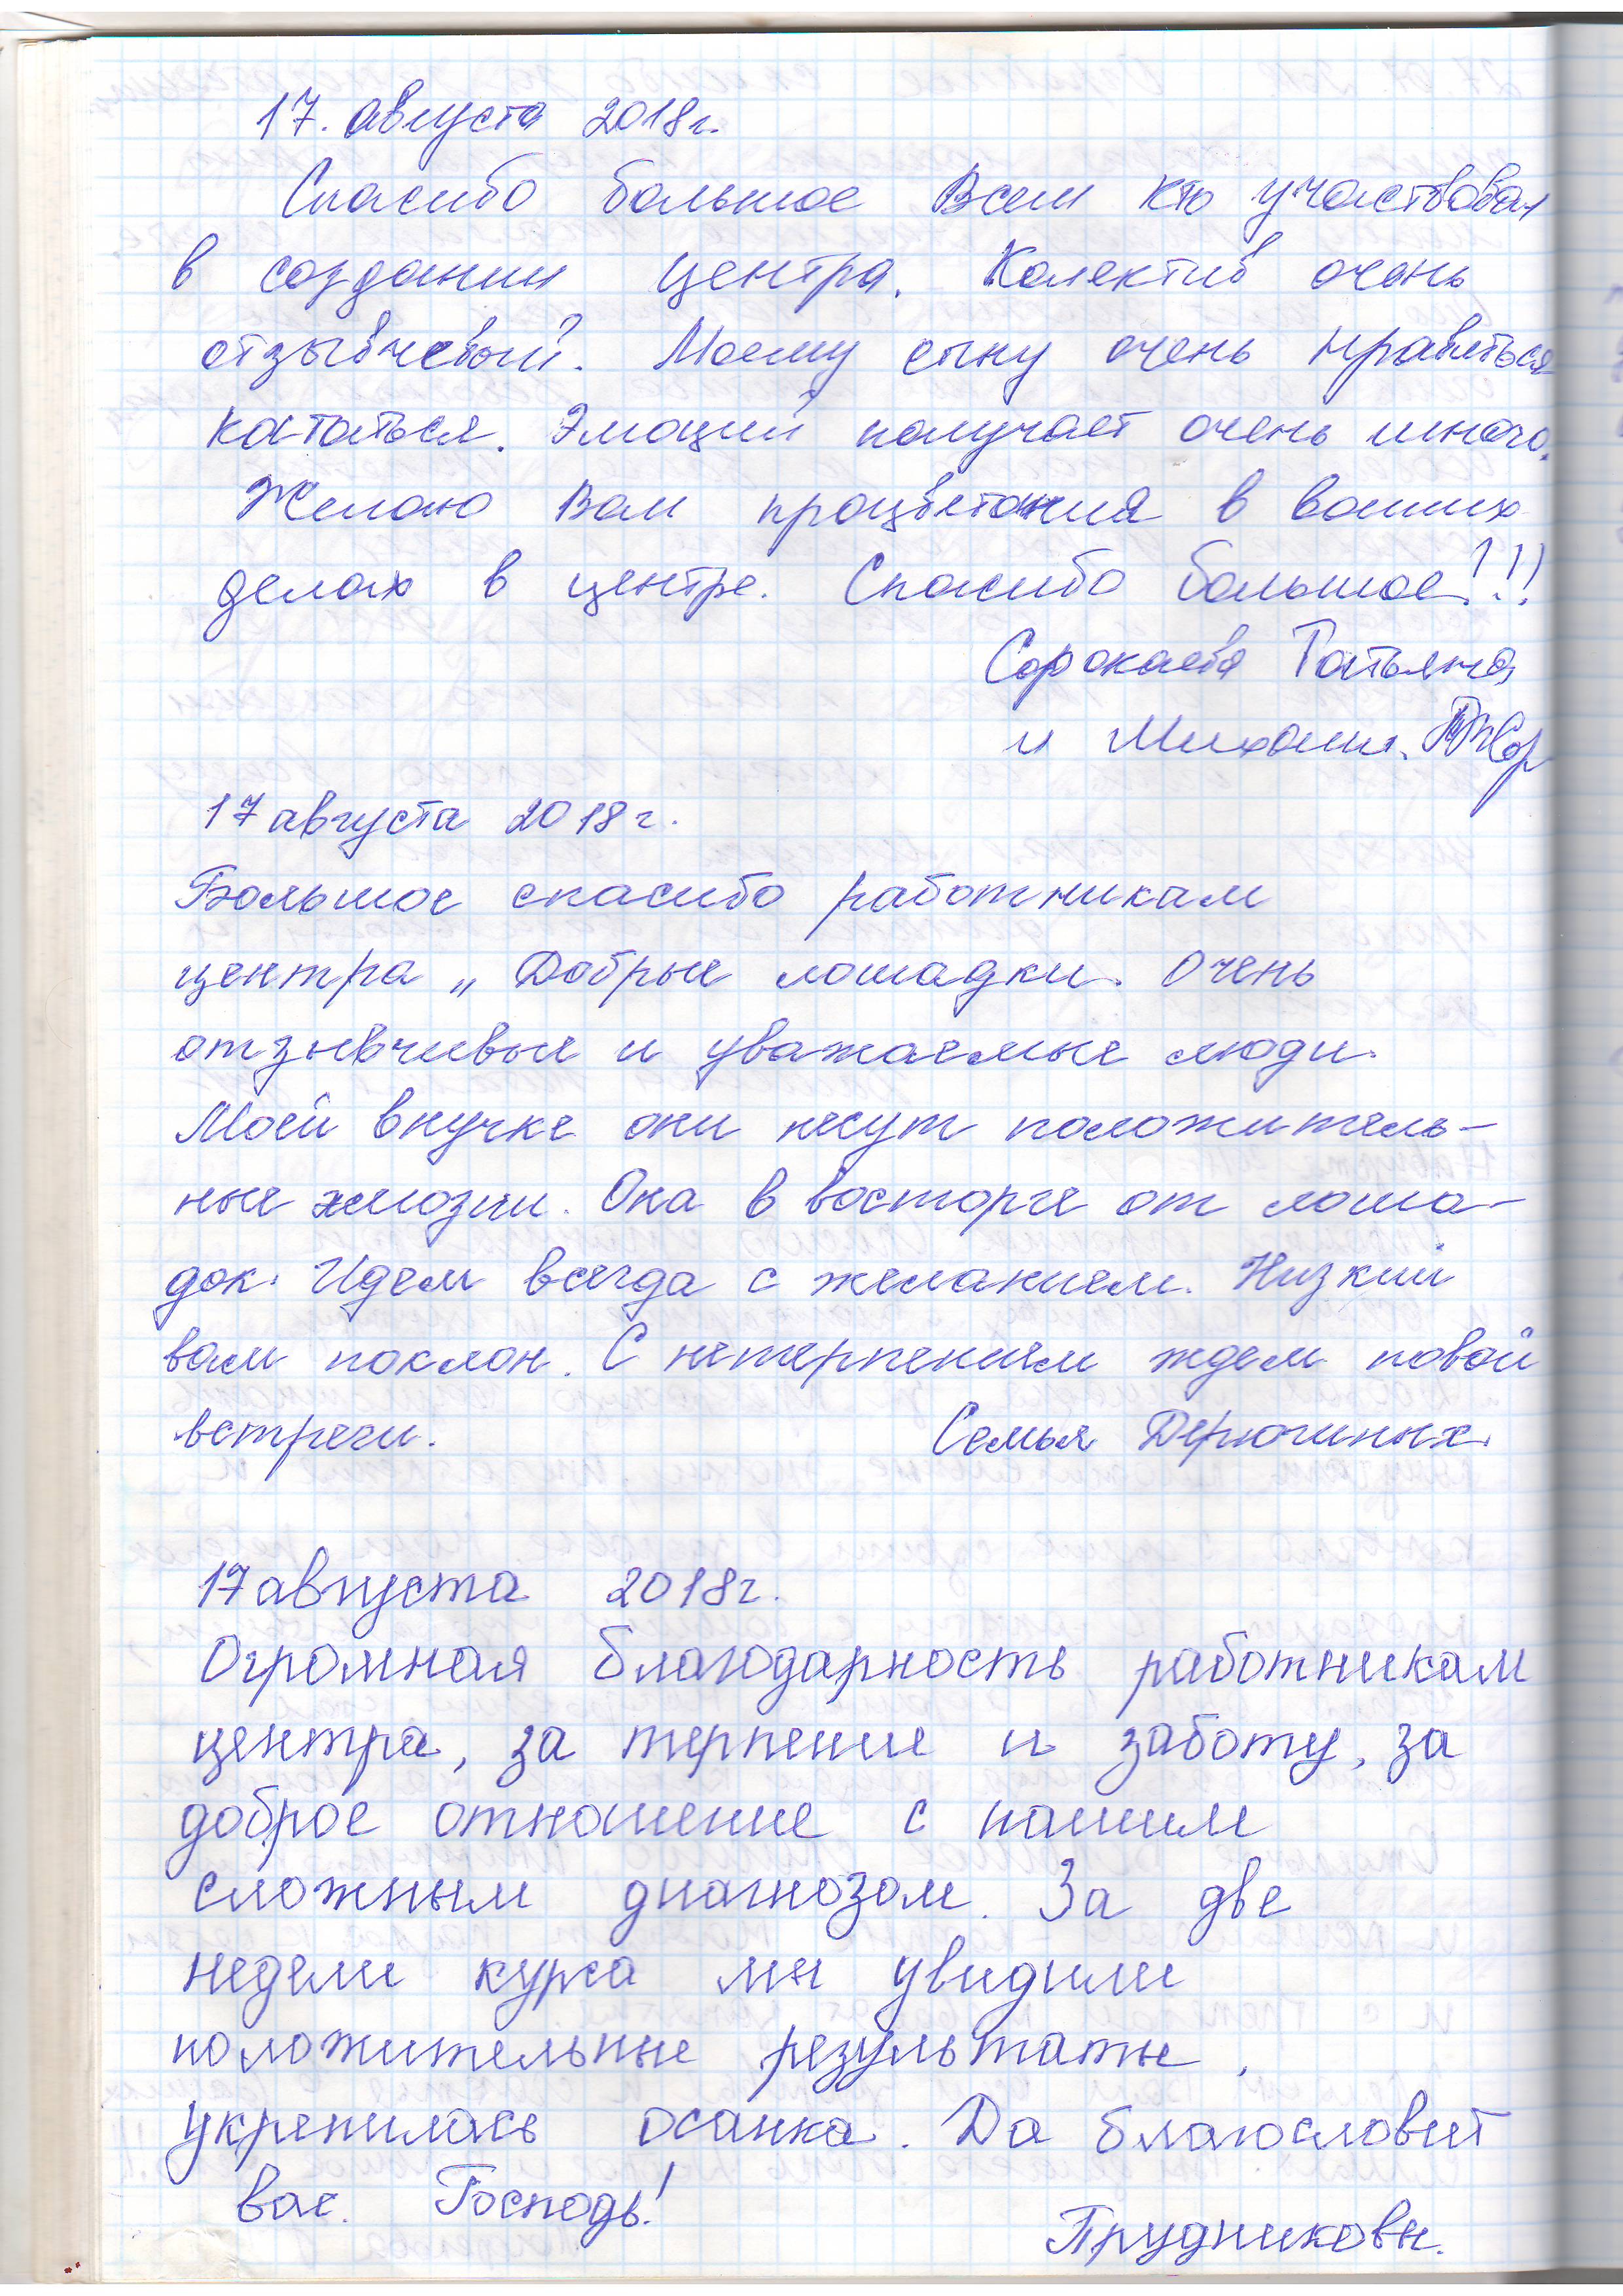 17. августа 2018г.
Спасибо большое Всем кто участвовал
в создании центра. Колектив очень
отзывчевый. Моему сыну очень нравяться
кататься. Эмоций получает очень много.
Желаю Вам процветания в ваших
делах в центре. Спасибо большое!!!
Сорокаева Татьяна
и Михаил.
17 августа 2018 г.
Большое спасибо работникам
центра „ Добрые лошадки. Очень
отзывчивые и уважаемые люди.
Моей внучке они несут положитель-
ные эмоэии. Она в восторге от лоша-
док. Идем всегда с желанием. Низкий
вам поклон. С нетерпением ждем новой
встречи. Семья Дерючиных.
17 августа 2018г.
Огромная благодарность работникам
центра, за терпение и заботу, за
доброе отношение с нашим
сложным диагнозом. За две
недели курса мы увидили
положительные результаты,
укрепилась осанка. Да благословит
вас. Господь!
Прудниковы.